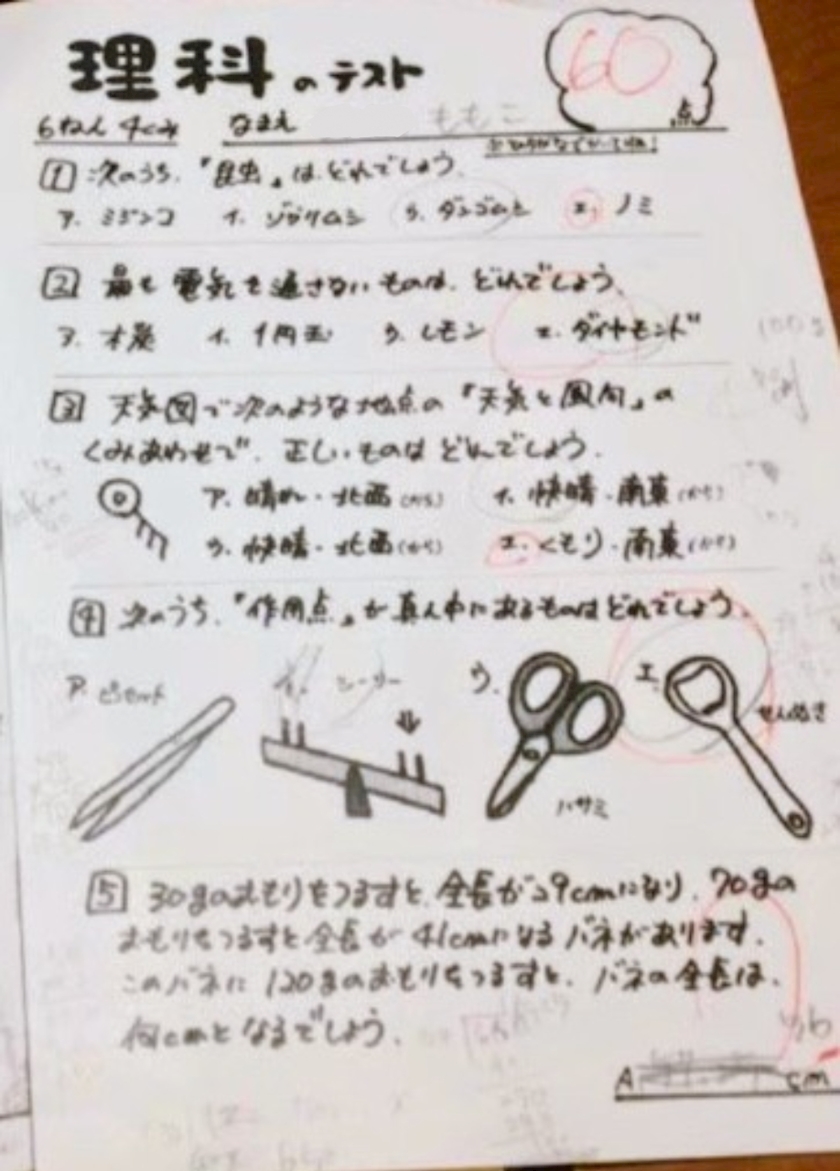 理科のテスト
60
点
6ねん 4くみ なまえ ももこ
1 次のうち、『昆虫』は、どれでしょう。
ア. ミジンコ イ. ゾウリムシ ウ. ダンゴムシ エ. ノミ
2 最も電気を通さないものは、どれでしょう。
ア. 木炭 イ. 千円玉 ウ. レモン エ. ダイヤモンド
3 天気図で次のような地点の『天気と風向』の
くみあわせで、正しいものはどれでしょう。
ア. 晴れ・北西(から) イ. 快晴・南東(から)
ウ. 快晴・北西(から) エ. くもり・南東(から)
4 次のうち、『作用点』が真ん中にあるものはどれでしょう。
ア. ピンセット イ. シーソー ウ. エ.
せんぬき
ハサミ
5 30gのおもりをつるすと、全長が29cmになり、70gの
おもりをつるすと全長が41cmになるバネがあります。
このバネに120gのおもりをつるすと、バネの全長は、
何cmとなるでしょう。
A cm